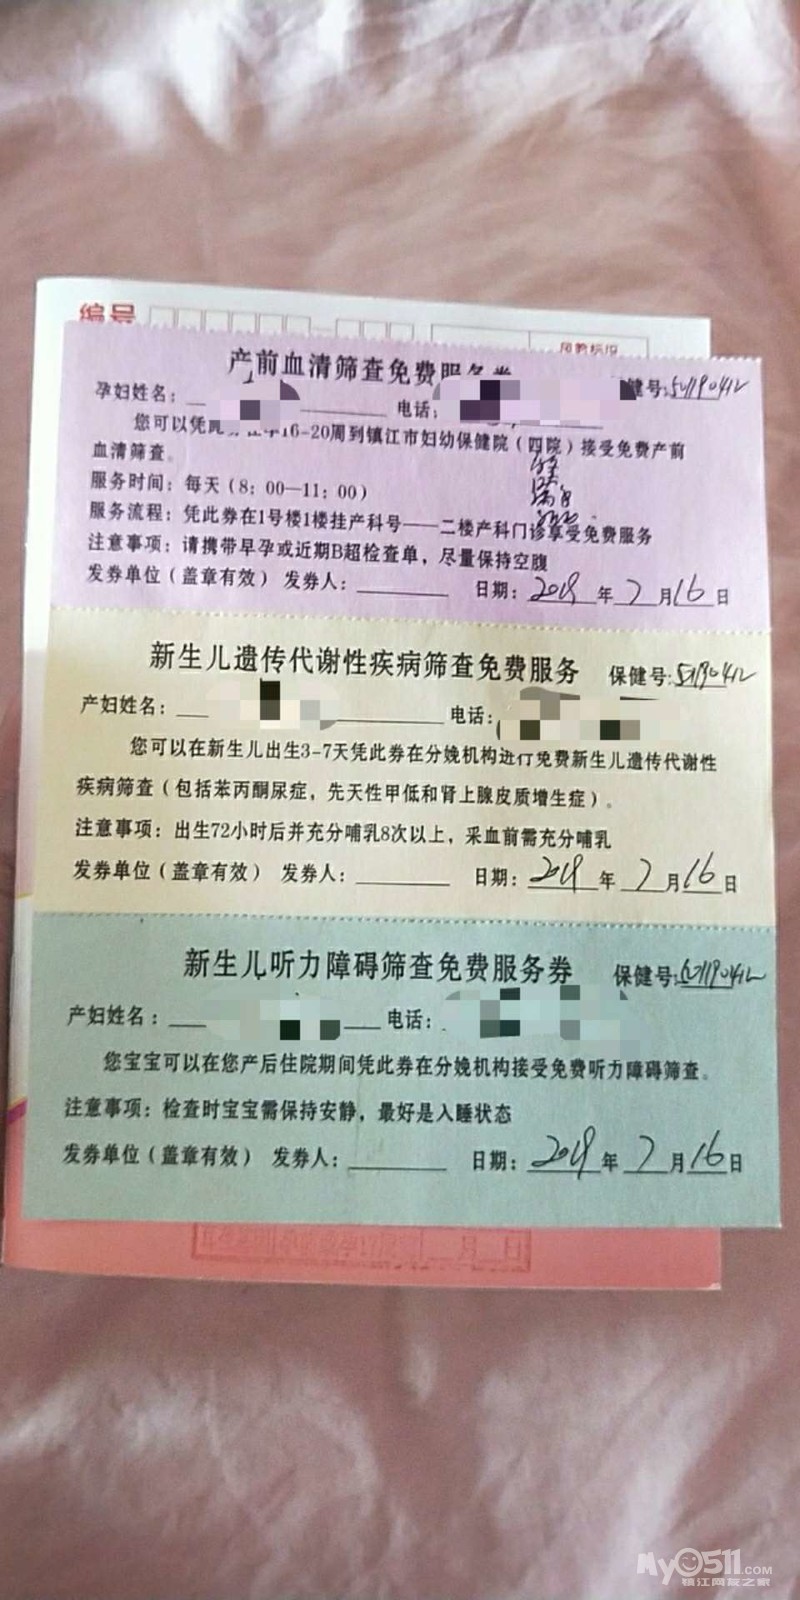 编号
产前血清筛查免费服务券
孕妇姓名： 电话： 健号:
您可以凭 16-20周到镇江市妇幼保健院（四院）接受免费产前
血清筛查。
服务时间：每天（8：00—11：00）
服务流程：凭此券在1号楼1楼挂产科号——二楼产科门诊享受免费服务
注意事项：请携带早孕或近期B超检查单，尽量保持空腹
发券单位（盖章有效） 发券人： 日期：2019 年 2 月 16 日
新生儿遗传代谢性疾病筛查免费服务 保健号:
产妇姓名： 电话：
您可以在新生儿出生3-7天凭此券在分娩机构进行免费新生儿遗传代谢性
疾病筛查（包括苯丙酮尿症，先天性甲低和肾上腺皮质增生症）。
注意事项：出生72小时后并充分哺乳8次以上，采血前需充分哺乳
发券单位（盖章有效） 发券人： 日期：2019 年 2 月 16 日
新生儿听力障碍筛查免费服务券 保健号:
产妇姓名： 电话：
您宝宝可以在您产后住院期间凭此券在分娩机构接受免费听力障碍筛查。
注意事项：检查时宝宝需保持安静，最好是入睡状态
发券单位（盖章有效） 发券人： 日期：2019 年 2 月 16 日
My0511.COM
镇江网友之家